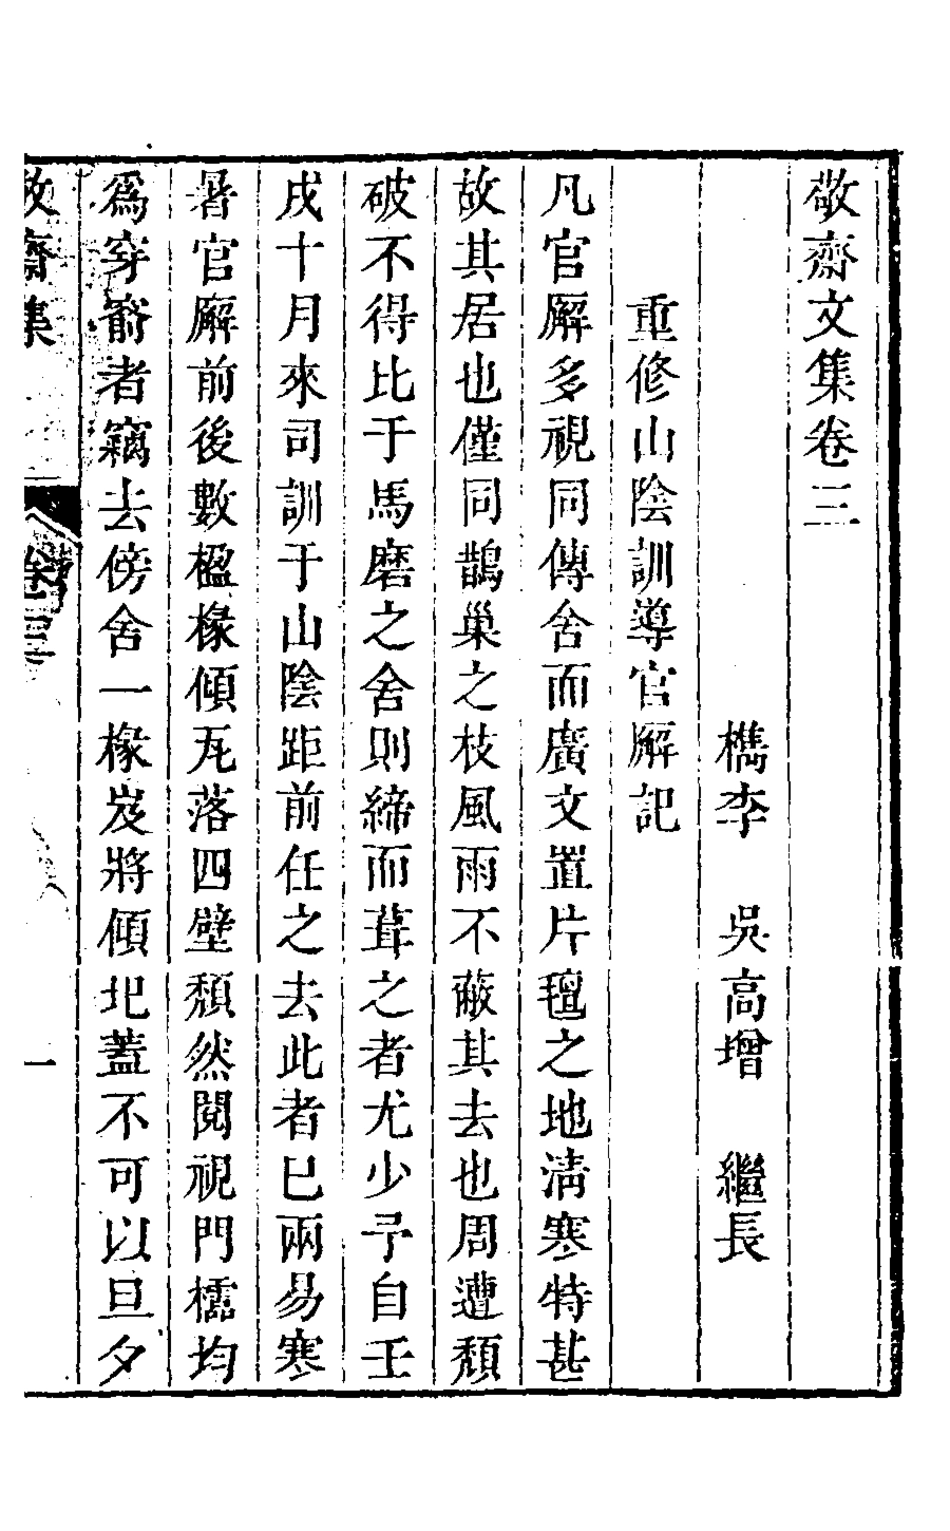 敬齋文集卷三
檇李　吳高增　繼長
重修山陰訓導官廨記
凡官廨多視同傳舍而廣文置片氊之地淸寒特甚
故其居也僅同鵲巢之枝風雨不蔽其去也周遭頹
破不得比于馬磨之舍則締而葺之者尤少予自壬
戌十月來司訓于山陰距前任之去此者已兩易寒
暑官廨前後數楹椽傾瓦落四壁頹然閱視門櫺均
爲穿窬者竊去傍舍一椽岌將傾圯蓋不可以旦夕
敬齋集　卷三　一